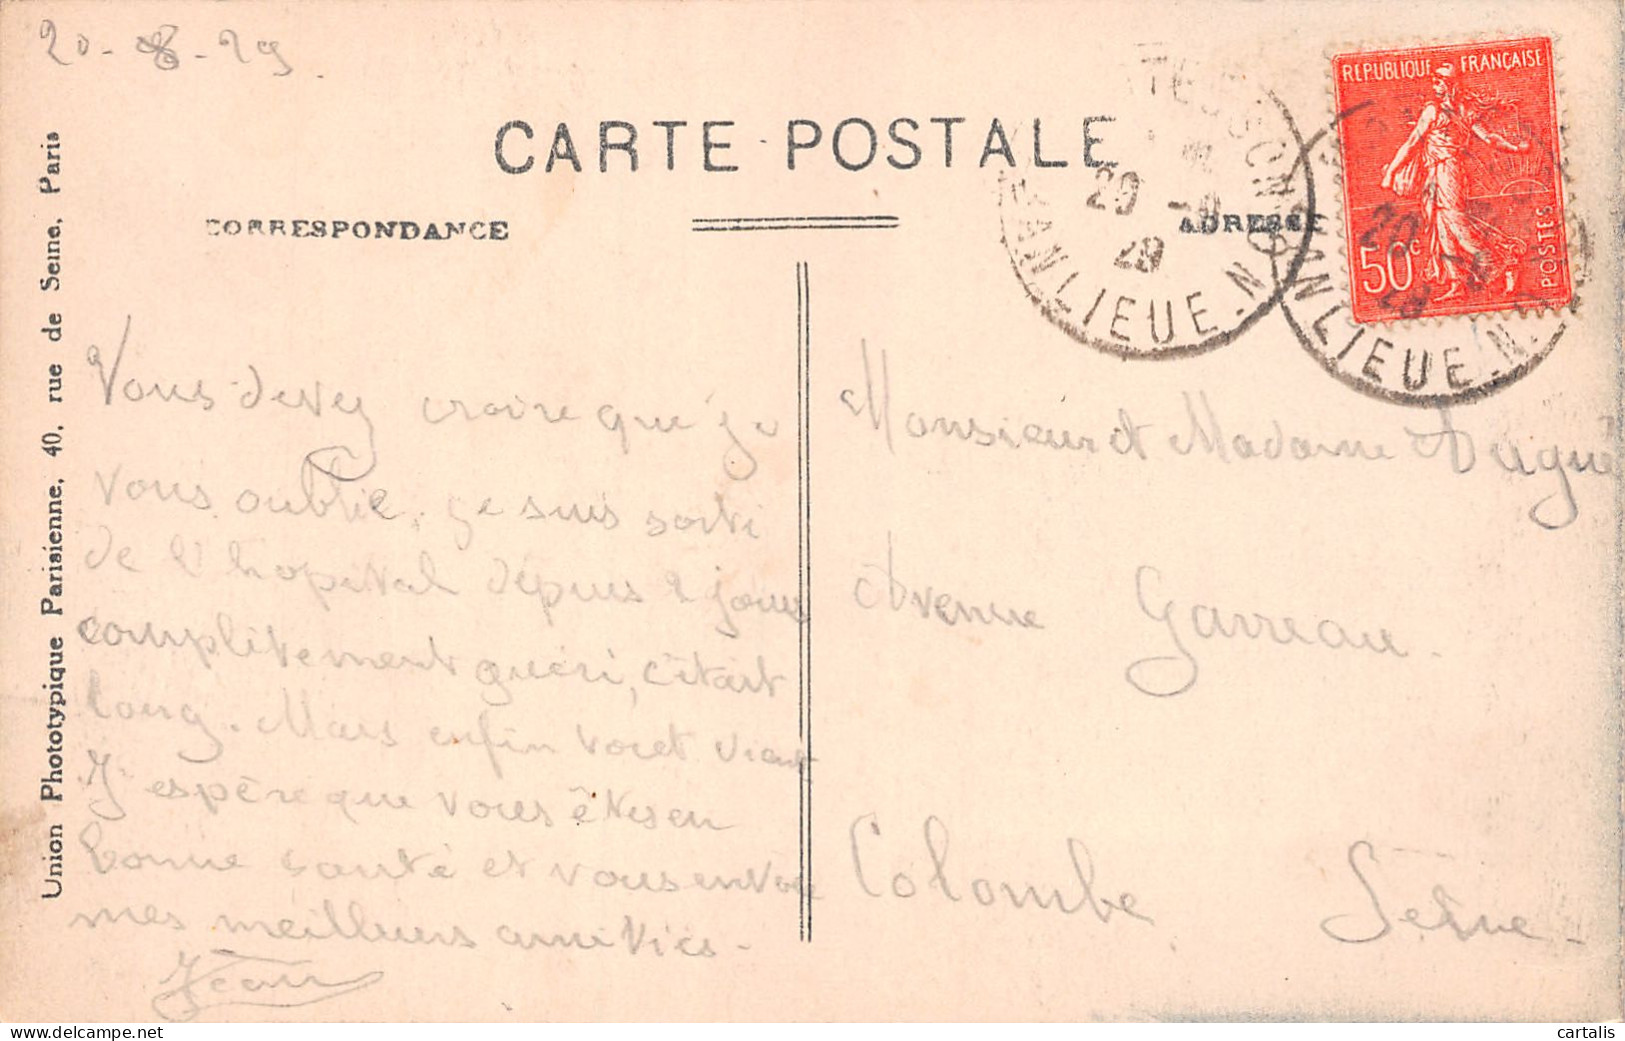 20-8-29.
CARTE POSTALE
CORRESPONDANCE
ADRESSE
REPUBLIQUE FRANÇAISE
50c
POSTES
20 -8
29
BANLIEUE. N
20
29
BANLIEUE. N.
Union Phototypique Parisienne, 40, rue de Seine, Paris
Vous devez croire que je
vous oublie. Je suis sorti
de l'hopital depuis 2 jours
complitement guéri, c'était
long. Mais enfin
J'espère que vous êtes en
bonne santé et vous envoie
mes meilleurs amitiés-
Jean
Monsieur et Madame
Avenue Garreau.
Colombe Seine-
cartalis